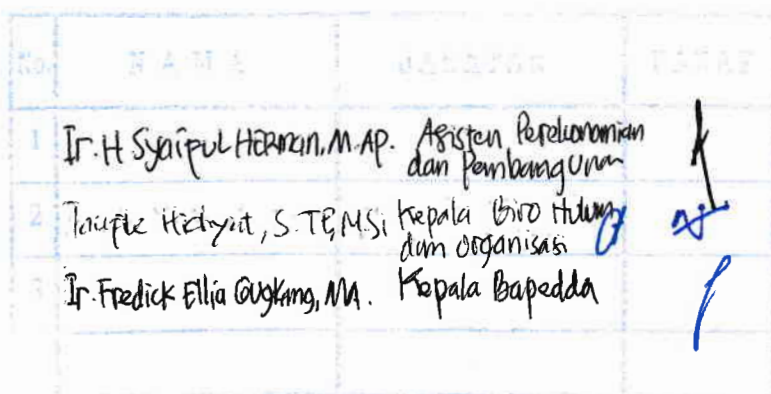 No. NAMA JABATAN PARAF
1 Ir. H Syaipul HERMAN, M.AP. Asisten Perekonomian
dan Pembangunan
2 Taufik Hidayat, S.TP, MSi Kepala Biro Hukum
dan organisasi
3 Ir. Fredick Ellia Gugkang, MA. Kepala Bapedda